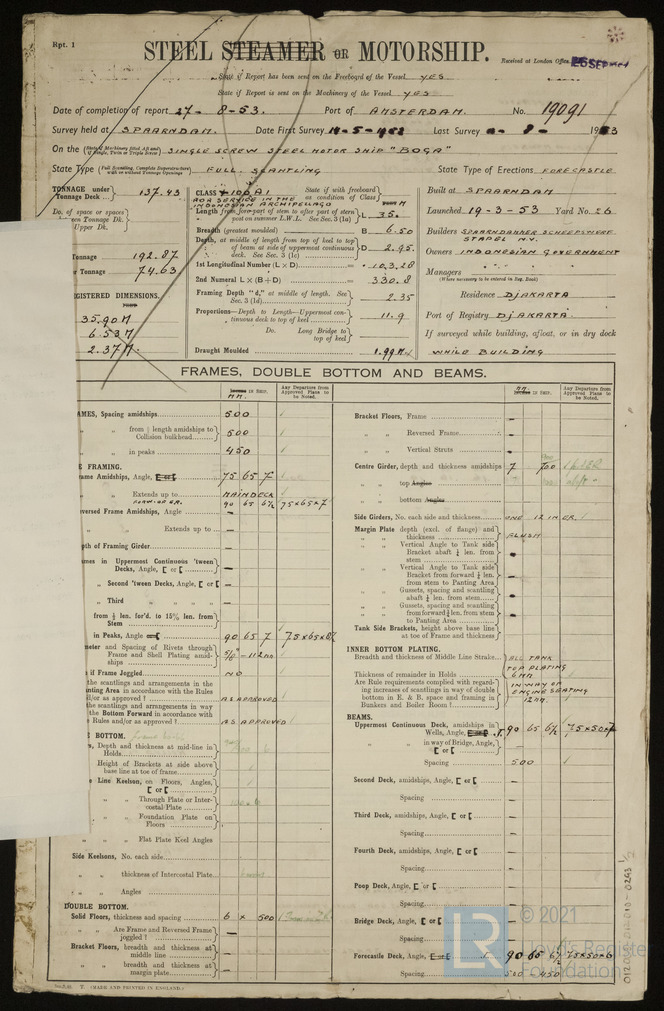 Rpt. 1
STEEL STEAMER OR MOTORSHIP.
Received at London Office
State if Report has been sent on the Freeboard of the Vessel YES
State if Report is sent on the Machinery of the Vessel YES
Date of completion of report 27-8-53. Port of AMSTERDAM. No. 19091
Survey held at SPAARNDAM. Date First Survey Last Survey
On the SINGLE SCREW STEEL MOTOR SHIP "BOGA"
State Type FULL SCANTLING State Type of Erections FORECASTLE
TONNAGE under Tonnage Deck 137.43
Do. of space or spaces
Upper Dk.
Tonnage 192.87
Tonnage 74.63
REGISTERED DIMENSIONS.
35.90 M
6.53 M
2.37 M
CLASS +100A1 State if with freeboard as condition of Class
FOR SERVICE IN THE INDONESIAN ARCHIPELAGO
Length from fore part of stem to after part of stern post on summer L.W.L. See Sec. 3 (1a) L 35.
Breadth (greatest moulded) B 6.50
Depth, at middle of length from top of keel to top of beam at side of uppermost continuous deck. See Sec. 3 (1c) D 2.95
1st Longitudinal Number (L × D) 103.28
2nd Numeral L × (B + D) 330.8
Framing Depth "d," at middle of length. See Sec. 3 (1d) 2.35
Proportions—Depth to Length—Uppermost continuous deck to top of keel 11.9
Do. Long Bridge to top of keel
Draught Moulded 1.99 M
Built at SPAARNDAM
Launched 19-3-53 Yard No. 26
Builders SPAARNDAMMER SCHEEPSWERF STAPEL N.V.
Owners INDONESIAN GOVERNMENT
Managers
(Where necessary to be entered in Reg. Book)
Residence DJAKARTA
Port of Registry DJAKARTA
If surveyed while building, afloat, or in dry dock
WHILE BUILDING
FRAMES, DOUBLE BOTTOM AND BEAMS.
Any Departure from Approved Plans to be Noted.
FRAMES, Spacing amidships 500
" " from ⅗ length amidships to Collision bulkhead 500
" " in peaks 450
FRAMING.
Frame Amidships, Angle 75 65 7
" " Extends up to MAINDECK
90 65 6½ 75x65x7
Reversed Frame Amidships, Angle —
" " Extends up to —
Depth of Framing Girder —
Frames in Uppermost Continuous 'tween Decks, Angle, [ or [ —
" Second 'tween Decks, Angle, [ or [ —
" Third " " " " —
" from ⅕ len. for'd. to 15% len. from Stem —
" in Peaks, Angle 90 65 7 75x65x8½
Diameter and Spacing of Rivets through Frame and Shell Plating amidships
if Frame Joggled NO
the scantlings and arrangements in the Panting Area in accordance with the Rules and/or as approved? AS APPROVED
the scantlings and arrangements in way of the Bottom Forward in accordance with the Rules and/or as approved? AS APPROVED
BOTTOM.
Depth and thickness at mid-line in Holds
Height of Brackets at side above base line at toe of frame
Line Keelson, on Floors, Angles, [ or [
" " Through Plate or Intercostal Plate
" " Foundation Plate on Floors
" " Flat Plate Keel Angles
Side Keelsons, No. each side
" " thickness of Intercostal Plate
" " Angles
DOUBLE BOTTOM.
Solid Floors, thickness and spacing 6 x 500
" " Are Frame and Reversed Frame joggled? —
Bracket Floors, breadth and thickness at middle line —
" " breadth and thickness at margin plate —
Bracket Floors, Frame —
" " Reversed Frame —
" " Vertical Struts —
Centre Girder, depth and thickness amidships 7 700
" " top Angles
" " bottom Angles
Side Girders, No. each side and thickness ONE 12 IN ER.
Margin Plate depth (excl. of flange) and thickness FLUSH
" " Vertical Angle to Tank side Bracket abaft ¼ len. from stem
" " Vertical Angle to Tank side Bracket from forward ¼ len. from stem to Panting Area
" " Gussets, spacing and scantling abaft ¼ len. from stem
" " Gussets, spacing and scantling from forward ¼ len. from stem to Panting Area
Tank Side Brackets, height above base line at toe of Frame and thickness
INNER BOTTOM PLATING.
Breadth and thickness of Middle Line Strake ALL TANK TOP PLATING 6MM
Thickness of remainder in Holds
Are Rule requirements complied with regarding increases of scantlings in way of double bottom in E. & B. space and framing in Bunkers and Boiler Room? IN WAY OF ENGINE SEATING 12MM
BEAMS.
Uppermost Continuous Deck, amidships in Wells, Angle 90 65 6½ 75x50x7
" " in way of Bridge, Angle, [ or [ —
Spacing 500
Second Deck, amidships, Angle, [ or [ —
Spacing —
Third Deck, amidships, Angle, [ or [ —
Spacing —
Fourth Deck, amidships, Angle, [ or [ —
Spacing —
Poop Deck, Angle, [ or [ —
Spacing
Bridge Deck, Angle, [ or [
Spacing
Forecastle Deck, Angle 90 65 6½ 75x50x6
Spacing 500 - 450
(MADE AND PRINTED IN ENGLAND.)
LR
© 2021
Lloyd's Register Foundation